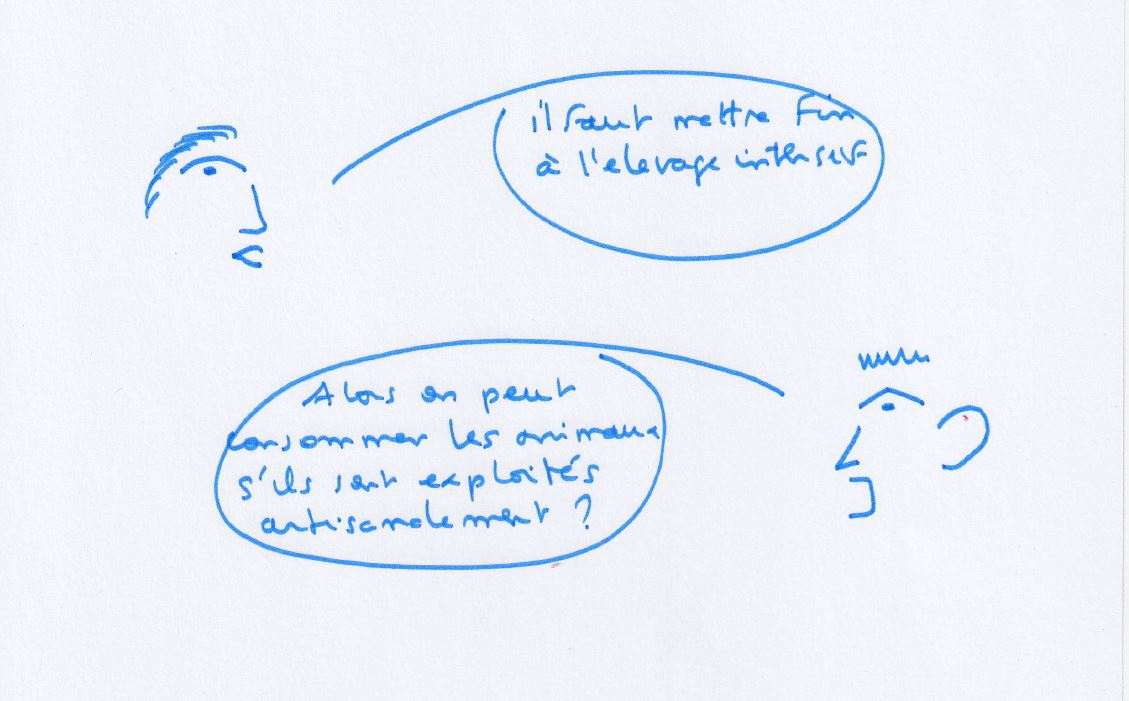 il faut mettre fin
à l'elevage intensif
Alors on peut
consommer les animaux
s'ils sont exploités
artisanalement ?